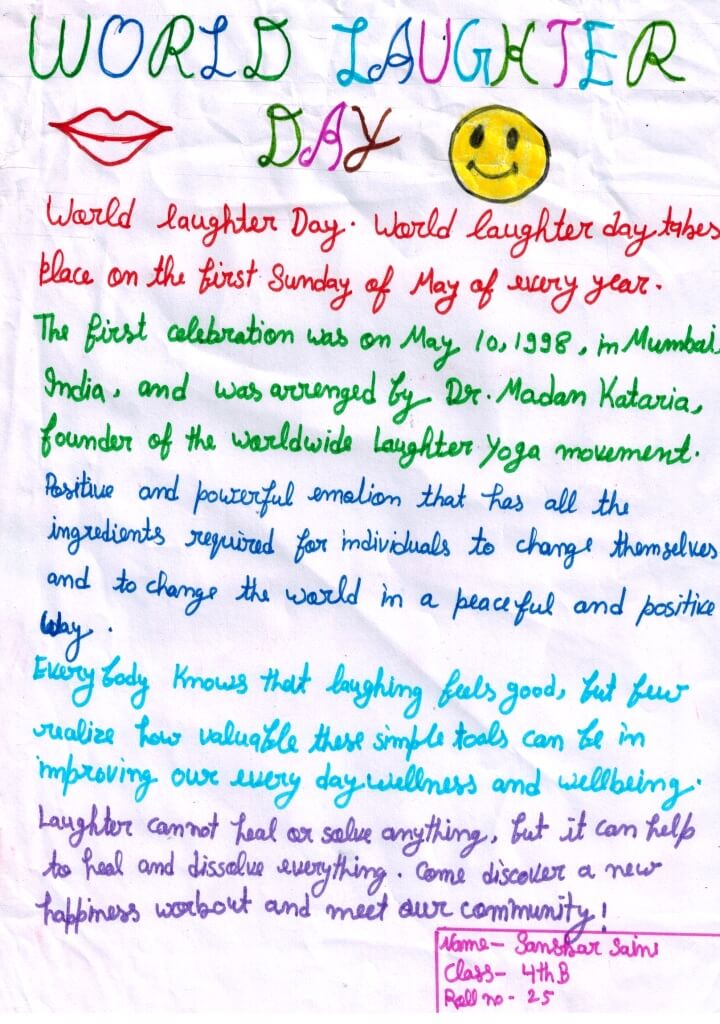 WORLD LAUGHTER
DAY
World laughter Day. World laughter day takes
place on the first Sunday of May of every year.
The first celebration was on May 10, 1998, in Mumbai,
India, and was arrenged by Dr. Madan Kataria,
founder of the worldwide Laughter Yoga movement.
Positive and powerful emotion that has all the
ingredients required for individuals to change themselves
and to change the world in a peaceful and positive
way.
Everybody knows that laughing feels good, but few
realize how valuable these simple tools can be in
improving our every day wellness and wellbeing.
Laughter cannot heal or solve anything, but it can help
to heal and dissolve everything. Come discover a new
happiness workout and meet our community!
Name- Sanskar Saini
Class- 4th B
Roll no - 25